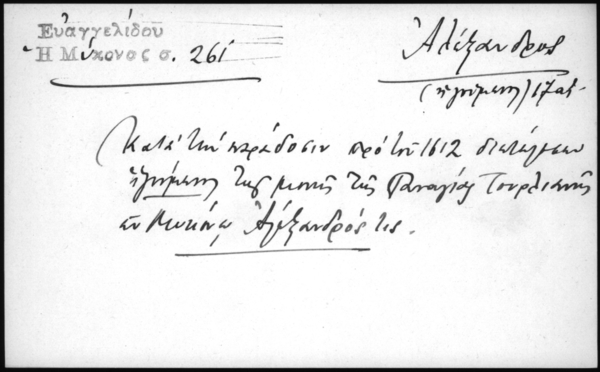 Εὐαγγελίδου
Ἡ Μύκονος σ. 261
Ἀλέξανδρος
(ἡγούμενος) 17 αι.
Κατὰ τὴν παράδοσιν πρὸ τοῦ 1612 διετέλεσεν
ἡγούμενος τῆς μονῆς τῆς Παναγίας Τουρλιανῆς
ἐν Μυκόνῳ Ἀλέξανδρός τις.